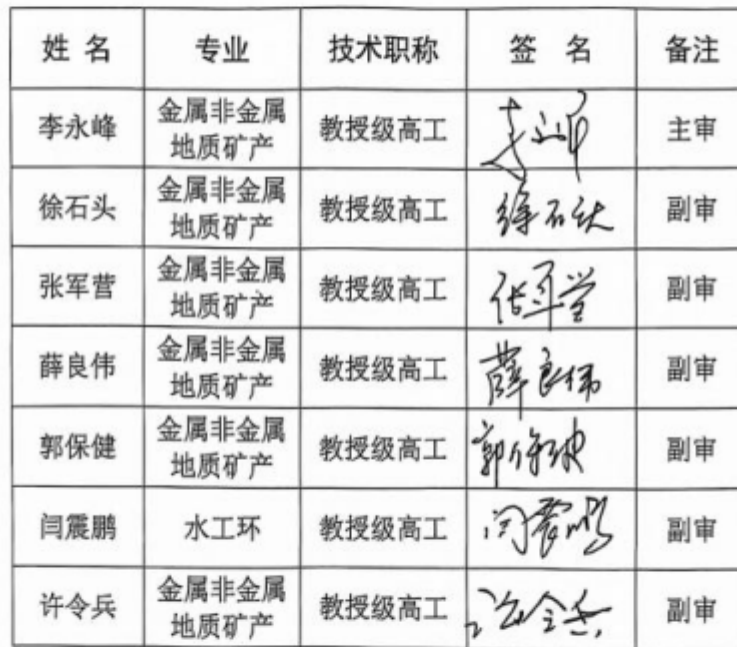 姓 名 专业 技术职称 签 名 备注
李永峰 金属非金属 地质矿产 教授级高工 李永峰 主审
徐石头 金属非金属 地质矿产 教授级高工 徐石头 副审
张军营 金属非金属 地质矿产 教授级高工 张军营 副审
薛良伟 金属非金属 地质矿产 教授级高工 薛良伟 副审
郭保健 金属非金属 地质矿产 教授级高工 郭保健 副审
闫震鹏 水工环 教授级高工 闫震鹏 副审
许令兵 金属非金属 地质矿产 教授级高工 许令兵 副审